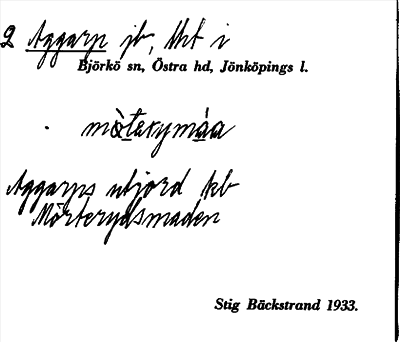 2 Aggarp jb, tkt i
Björkö sn, Östra hd, Jönköpings l.
mòterymáa
Aggarps utjord kb
Mörterydsmaden
Stig Bäckstrand 1933.